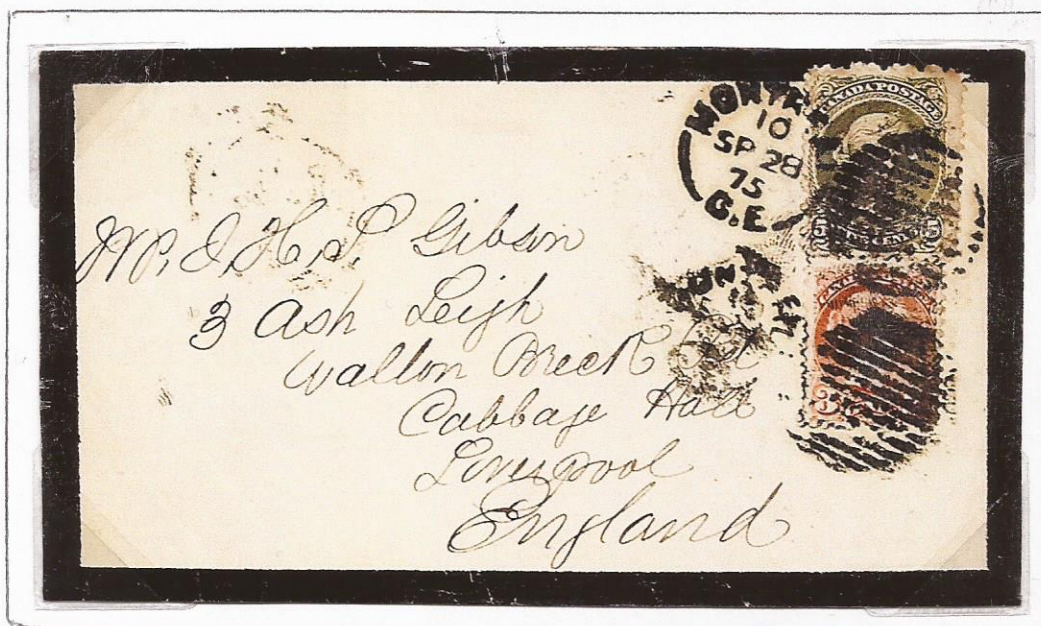 MONTR
10
SP 28
75
C.E
CANADA POSTAGE
5 CENTS 5
Mr. J. H. S. Gibson
3 Ash Leigh
Wallon Breck Rd
Cabbage Hall
Liverpool
England